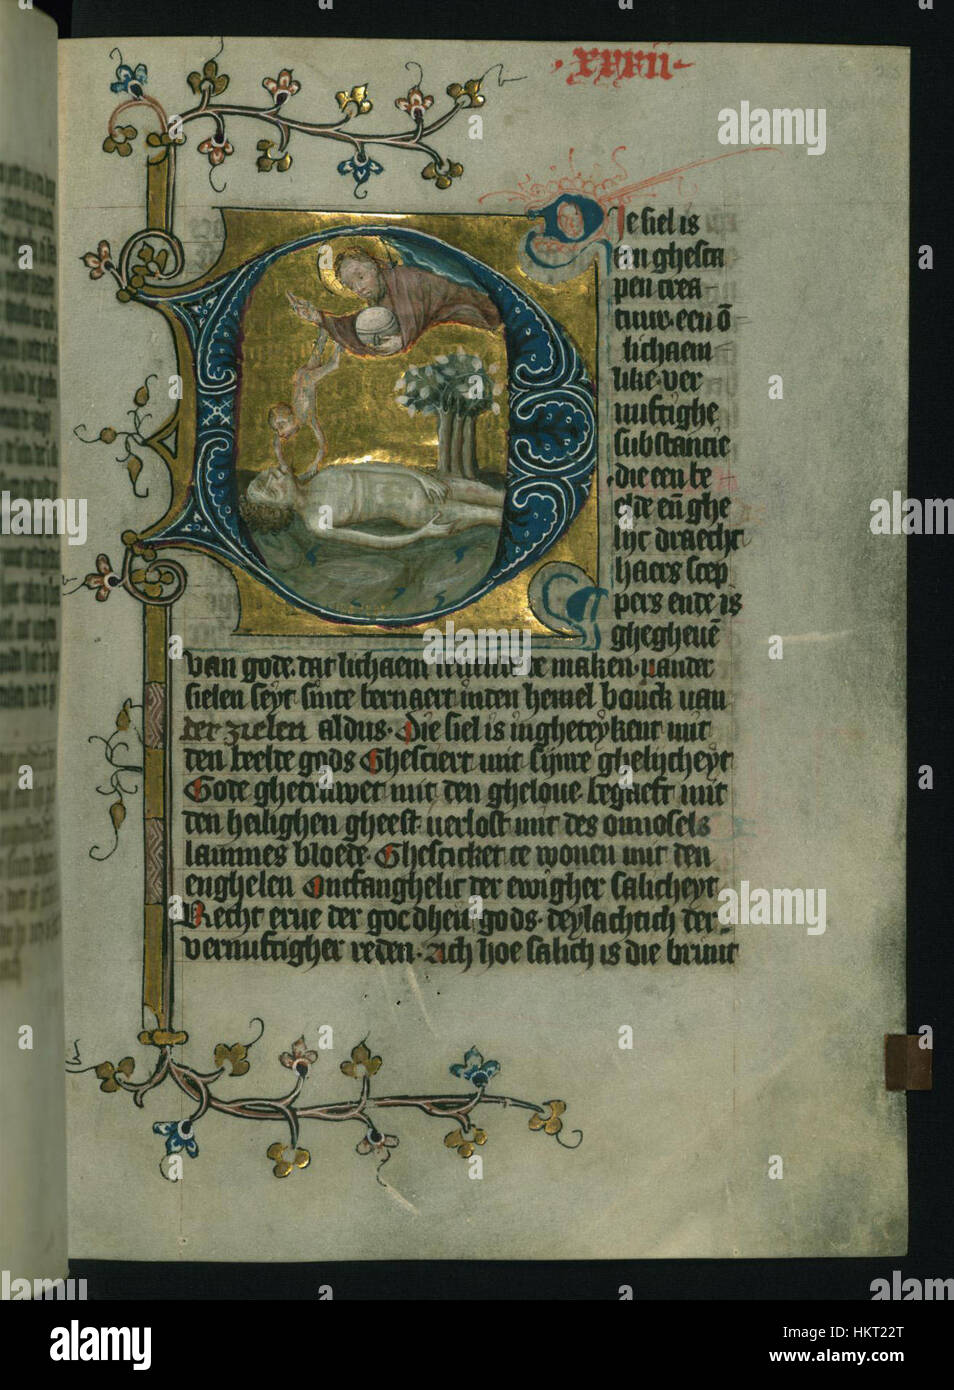 xxxvii
Die siel is
een ghesca
pen crea
tuur. een ō
lichaem
like. ver
nuftighe
substancie
die een be
elde eñ ghe
lyc draecht
haers scep
pers ende is
ghegheuē
van gode. dat lichaem te maken. vander
sielen seyt sinte bernaert inden hemel bouck van
der zielen aldus. Die siel is ingheteykent mit
den beelde gods Ghesciert mit sijnre ghelijcheyt
Gode ghetruwet mit den gheloue. begaeft mit
den heilighen gheest. verlost mit des onnosels
lammes bloede. Ghesticket te wonen mit den
enghelen Ontfanghelic der ewigher salicheyt
Recht erue der gods. deylachtich der
vernuftigher reden. Ach hoe salich is die bruut
alamy
Image ID: HKT22T
www.alamy.com